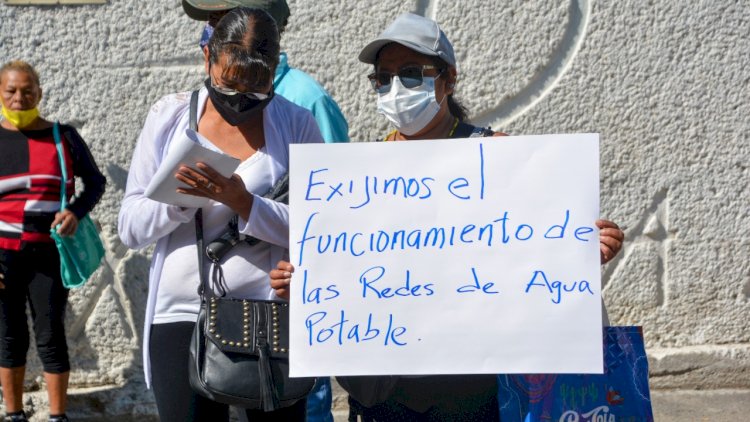 Exijimos el
funcionamiento de
las Redes de Agua
Potable.